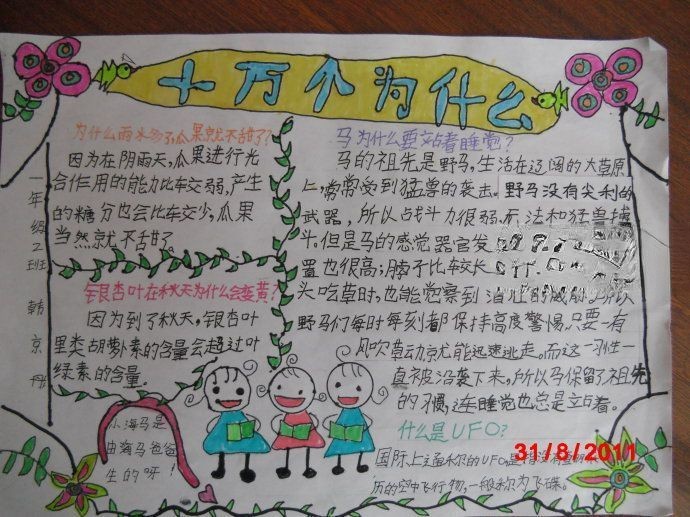 十万个为什么
为什么雨水多了瓜果就不甜了?
因为在阴雨天,瓜果进行光
合作用的能力比较弱,产生
的糖分也会比较少,瓜果
当然就不甜了。
银杏叶在秋天为什么会变黄?
因为到了秋天,银杏叶
里类胡萝素的含量会超过叶
绿素的含量。
小海马是
由海马爸爸
生的呀!
一年级2班 韩京丹
马为什么要站着睡觉?
马的祖先是野马,生活在辽阔的大草原
上,常常受到猛兽的袭击。野马没有尖利的
武器,所以战斗力很弱,无法和猛兽搏
斗。但是马的感觉器官发
置也很高;脖子比较长
头吃草时,也能觉察到
野马们每时每刻都保持高度警惕,只要一有
风吹草动就能迅速逃走。而这一习性一
直被沿袭下来,所以马保留了祖先
的习惯,连睡觉也总是立着。
什么是UFO?
国际上通称的UFO是指没有查明来
历的空中飞行物,一般称为飞碟。
31/8/2011